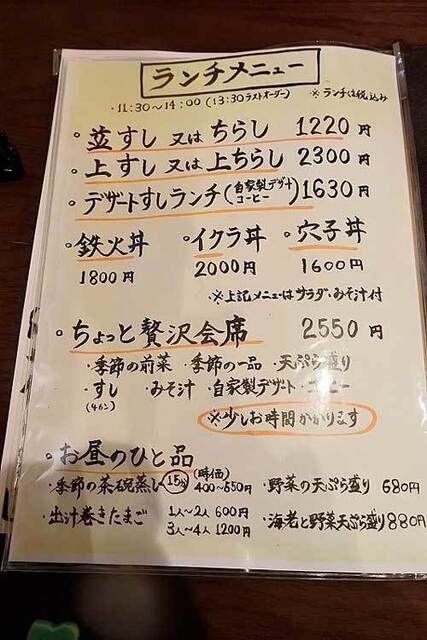 ランチメニュー
・11:30〜14:00(13:30ラストオーダー) ※ランチは税込み
・並すし 又は ちらし 1220円
・上すし 又は 上ちらし 2300円
・デザートすしランチ(自家製デザート コーヒー) 1630円
・鉄火丼 ・イクラ丼 ・穴子丼
1800円 2000円 1600円
※上記メニューはサラダ・みそ汁付
・ちょっと贅沢会席 2550円
・季節の前菜 ・季節の一品 ・天ぷら盛り
・すし ・みそ汁 ・自家製デザート ・コーヒー
(4カン)
※少しお時間かかります
・お昼のひと品
・季節の茶碗蒸し 15分 (時価) 400〜550円 ・野菜の天ぷら盛り 680円
・出汁巻きたまご 1人〜2人 600円
3人〜4人 1200円 ・海老と野菜天ぷら盛り 880円